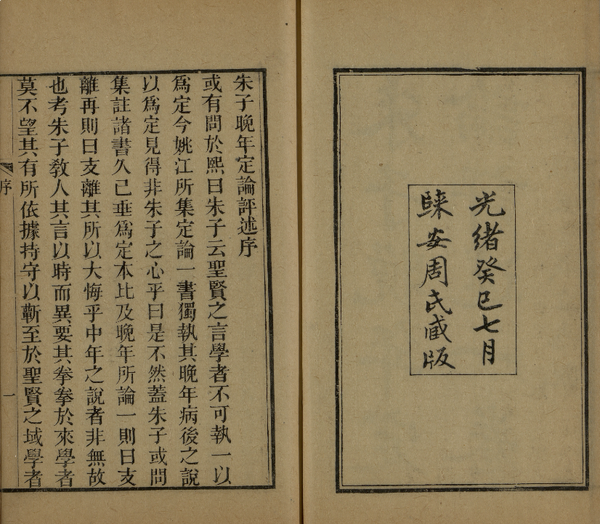 光緒癸巳七月
騋安周氏藏版
朱子晚年定論評述序
或有問於熙曰朱子云聖賢之言學者不可執一以
爲定今姚江所集定論一書獨執其晚年病後之說
以爲定見得非朱子之心乎曰是不然蓋朱子或問
集註諸書久已垂爲定本比及晚年所論一則曰支
離再則曰支離其所以大悔乎中年之說者非無故
也考朱子敎人其言以時而異要其拳拳於來學者
莫不望其有所依據持守以蘄至於聖賢之域學者
序
一